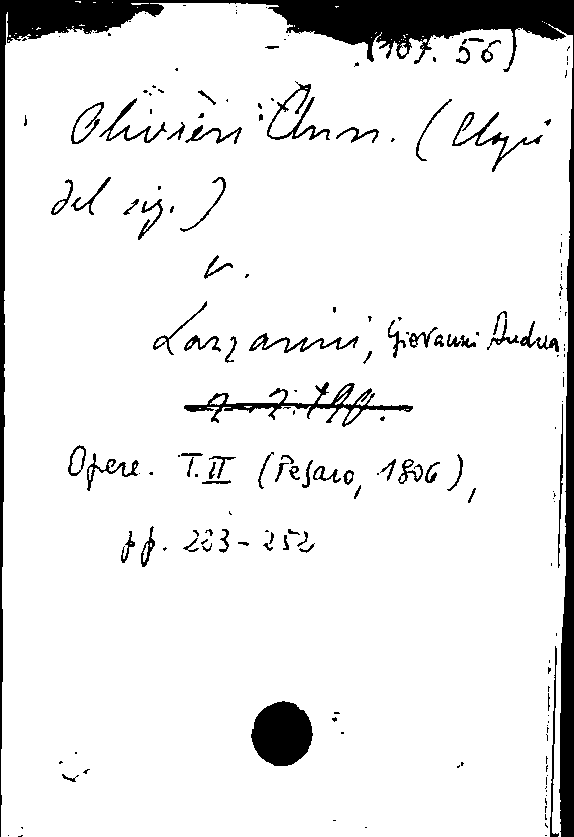 (107. 56)
Olivieri Ann. (Elogio
del sig.)
v.
Lazzarini, Giovanni Andrea
Opere. T. II (Pesaro, 1806),
pp. 223-252